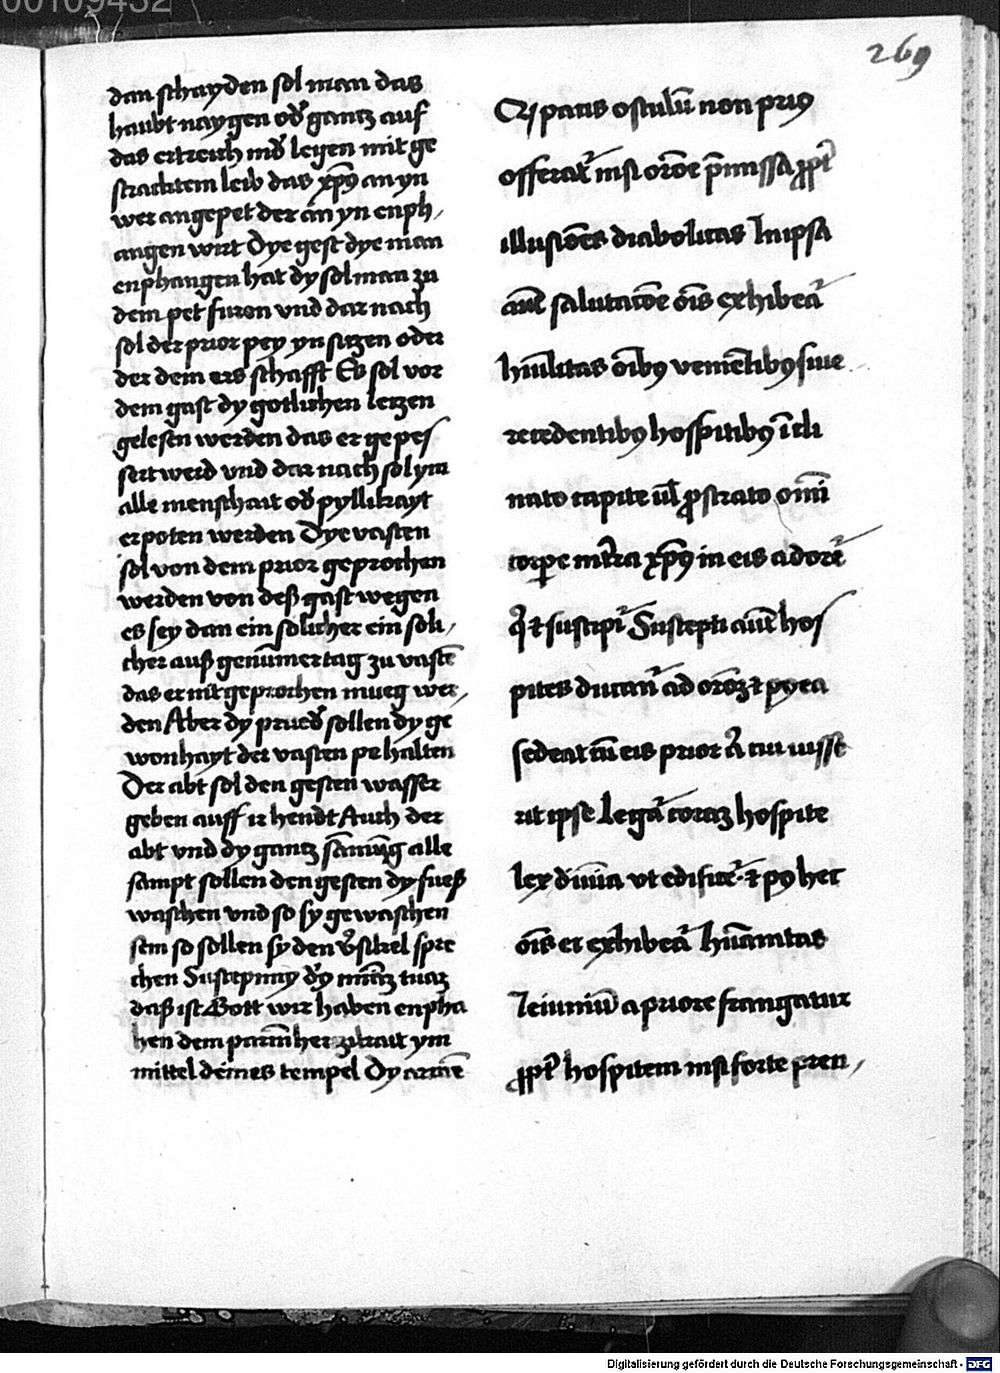 00109452
269
dan schayden sol man das
haubt naygen od̕ gantz auf
das ertreich nid̕ legen mit ge
stracktem leib das xp̄9 an yn
wer angepet der an yn enph,
angen wirt Dye gest dye man
enphangen hat dy sol man zu
dem pet furen vnd dar nach
sol der prior pey yn sitzen oder
der dem ers schafft Es sol vor
dem gast dy gotlichen letzen
gelesen werden das er ge pes
sert werd vnd dar nach sol ym
alle menschait od̕ pyllikayt
erpoten werden Dye vasten
sol von dem prior geprochen
werden von deß gast wegen
es sey dan ein solicher ein soli,
cher auß genūmer tag zu vastē
das er nit geprochen mueg wer,
den Aber dy prued̕ sollen dy ge
wonhayt der vasten pe halten
Der abt sol den gesten wasser
geben auff ir hendt Auch der
abt vnd dy gantz sāmūg alle
sampt sollen den gesten dy fueß
waschen vnd so sy gewaschen
sein so sollen sy den v̓sickel spre
chen Suscepimꝰ d̕ꝰ miā tuā
daß ist Gott wir haben enpha
hen dem parmherzikait ym
mittel deines tempel Dy armē
Cꝫ pacis osculū non priꝰ
offerat̕ nisi orōe p̄missa ꝓpt̕
illusiōēs diabolicas In ipsa
aūt salutacōe oīs exhibeat̕
hūilitas oībꝰ veniētibꝰ siue
recedentibꝰ hospitibꝰ īcli
nato capite ūl ꝓstrato omī
corpe in t̕ra xp̄ꝰ in eis adoret̕
q̕ ⁊ suscipit̕ Suscepti aūt hos
pites ducant̕ ad orōeꝫ ⁊ postea
sedeat cū eis prior a̕ cui iusse
rit ipse Legat̕ coraꝫ hospite
lex diuīa vt edificet̕ ⁊ pꝰ hec
oīs ei exhibeat̕ hūanitas
Ieiuniū a priore frangatur
ꝓpt̕ hospitem nisi forte precu,
Digitalisierung gefördert durch die Deutsche Forschungsgemeinschaft - DFG